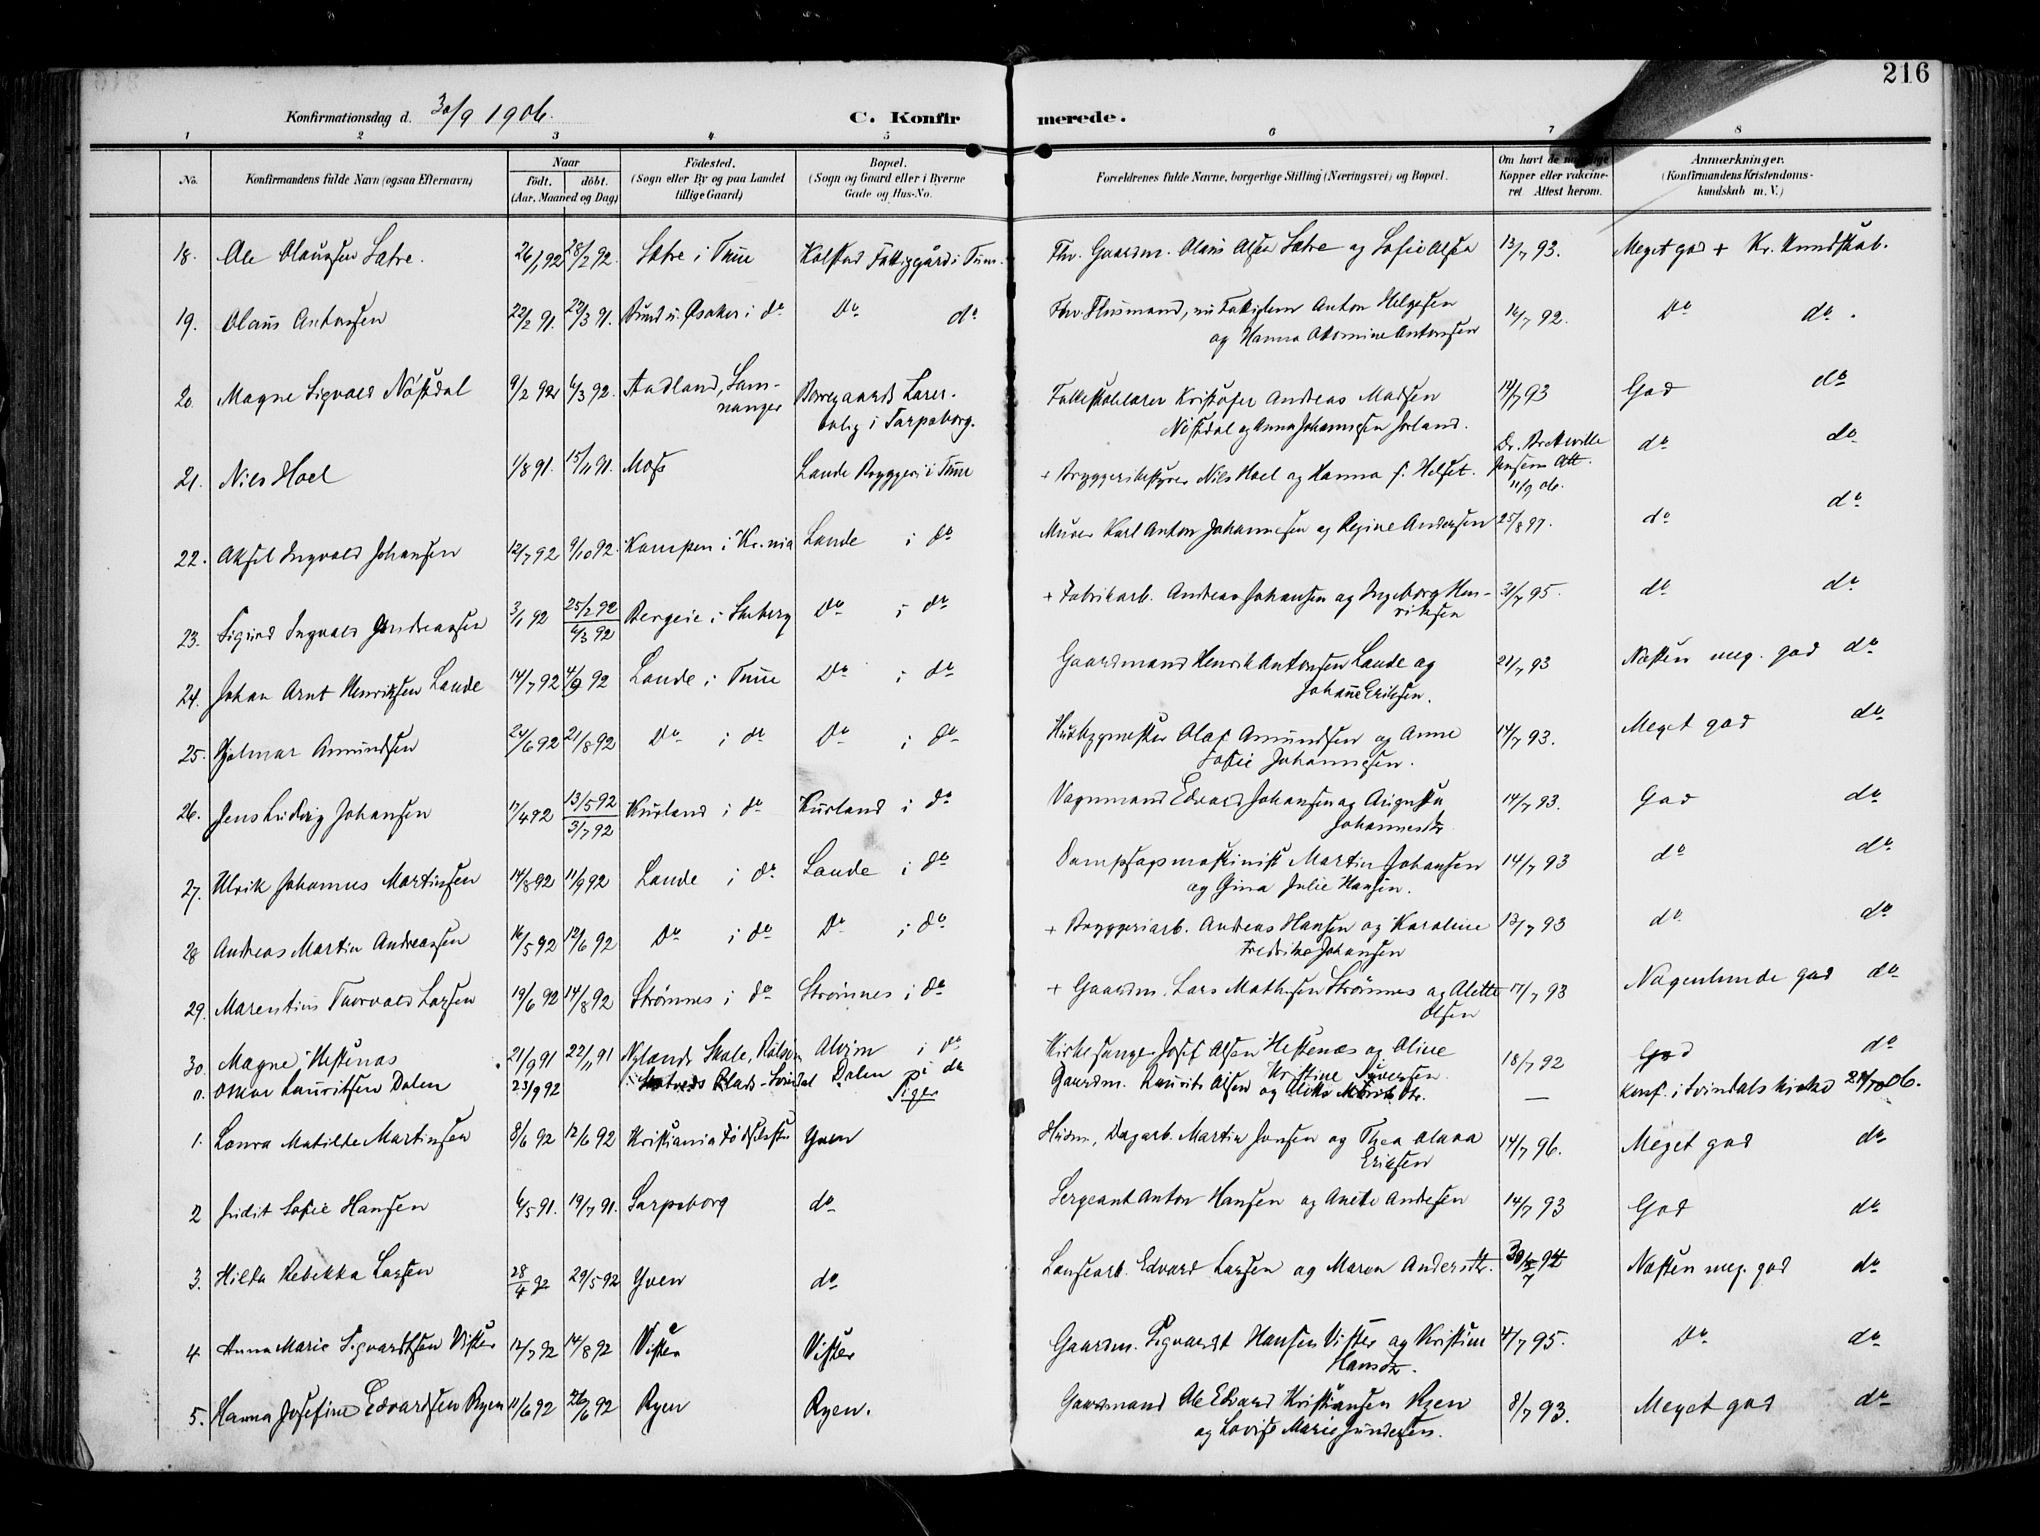 216
Konfirmationsdag d. 30/9 1906. C. Konfirmerede.
1 2 3 4 5 6 7 8
No. Konfirmandens fulde Navn (ogsaa Efternavn) Naar født. døbt. (Aar, Maaned og Dag) Fødested. (Sogn eller By og paa Landet tillige Gaard) Bopæl. (Sogn og Gaard eller i Byerne Gade og Hus-No. Forældrenes fulde Navne, borgerlige Stilling (Næringsvei) og Bopæl. Om havt de naturlige Kopper eller vakcineret. Attest herom. Anmærkninger. (Konfirmandens Kristendomskundskab m. V.)
18. Ole Olaussen Sætre. 26/1 92 28/2 92. Sætre i Tune Kalstad Fattiggård i Tune. Fhv. Gaardm. Olaus Olsen Sætre og Sofie Olsen 13/7 93. Meget god + Kr. Kundskab.
19. Olaus Antonsen 22/2 91. 22/3 91. i do Do do Fhv. Husmand, nu Anton Helgesen
og Hanna Antonsen 16/7 92. Do do.
20. Magne Sigvald Nøstdal 9/2 92 6/3 92. Aadland, Samnanger Borregaards Lærerbolig i Sarpsborg. Folkeskolelærer Kristofer Andreas Madsen
Nøstdal og Anna Johannesen 14/7 93 God do
21. Nils Hoel 1/8 91. 15/11 91. Moss Lande Bryggeri i Tune + Bryggeribestyrer Nils Hoel og Hanna f. Helset. Dr. Jensens Att. 11/9 06. do do
22. Aksel Ingvald Johansen 12/7 92 9/10 92. Kampen i Kr.nia Lande i do Murer Karl Anton Johannesen og Regine Andersen 25/8 97. do do
23. Sigurd Ingvald Andreassen 3/1 92 25/2 92 6/3 92 Bergeie i Skeberg Do i do + Fabrikarb. Andreas Johansen og Ingeborg Henriksen 21/7 95. do do
24. Johan Arnt Henriksen Lande 14/7 92 4/9 92 Lande i Tune Do i do Gaardmand Henrik Antonsen Lande og
Johanne Eriksen. 21/7 93 Næsten meg. god do
25. Hjalmar Amundsen 24/6 92 21/8 92 Do i do Do i do Olaf Amundsen og Anne
Sofie Johannesen. 14/7 93. Meget god do
26. Jens Ludvig Johansen 17/4 92 13/5 92 3/7 92 Kurland i do Kurland i do Vognmand Edvard Johansen og Augusta
Johannesdtr 14/7 93. God do
27. Ulrik Johannes Martinsen 14/8 92 11/9 92 Lande i do Lande i do Dampsagsmaskinist Martin Johansen
og Gina Julie Hansen. 14/7 93 do do
28 Andreas Martin Andreassen 16/5 92 12/6 92 Do i do Do i do + Bryggeriarb. Andreas Hansen og Karoline
Fredrikke Johansen 13/7 93 do do
29. Marentius Thorvald Larsen 19/6 92 14/8 92 Strømnes i do Strømnes i do + Gaardm. Lars Mathisen Strømnes og Alette
Olsen 17/7 93 Nogenlunde god do
30. Magne Hestenæs 21/9 91 22/11 91 Nylands Skole, Alvim i do Kirkesanger Josef Olsen Hestenæs og Oline
Kristine Syversen. 18/7 92 God do
n. Oskar Lauritsen Dalen 23/9 92 Dalen i do Gaardm. Laurits Olsen og — Konf. i Svindals Kirke 06.
Piger
1. Laura Matilde Martinsen 8/6 92 12/6 92 Kristiania Fødselsstif. Yven Husm, Dagarb. Martin Jensen og Thea Olava
Eriksen 14/7 96. Meget god do
2 Judit Sofie Hansen 6/5 91. 19/7 91. Sarpsborg do Sergeant Anton Hansen og Anette Andresen 14/7 93 God do
3. Hilda Rebekka Larsen 28/4 92 29/5 92 Yven do Lænsearb. Edvard Larsen og Maren Andersdtr. 30/7 94 Næsten meg. god do
4 Anna Marie Sigvardtsen Vister 12/7 92 14/8 92 Vister Vister Gaardm. Sigvardt Hansen Vister og Kristine
Hansdtr. 4/7 95. Do do
5. Hanna Josefine Edvardsen Ryen 11/6 92 26/6 92 Ryen Ryen. Gaardmand Ole Edvard Kristiansen Ryen
og Lovise Marie Gundersen. 8/7 93. Meget god do